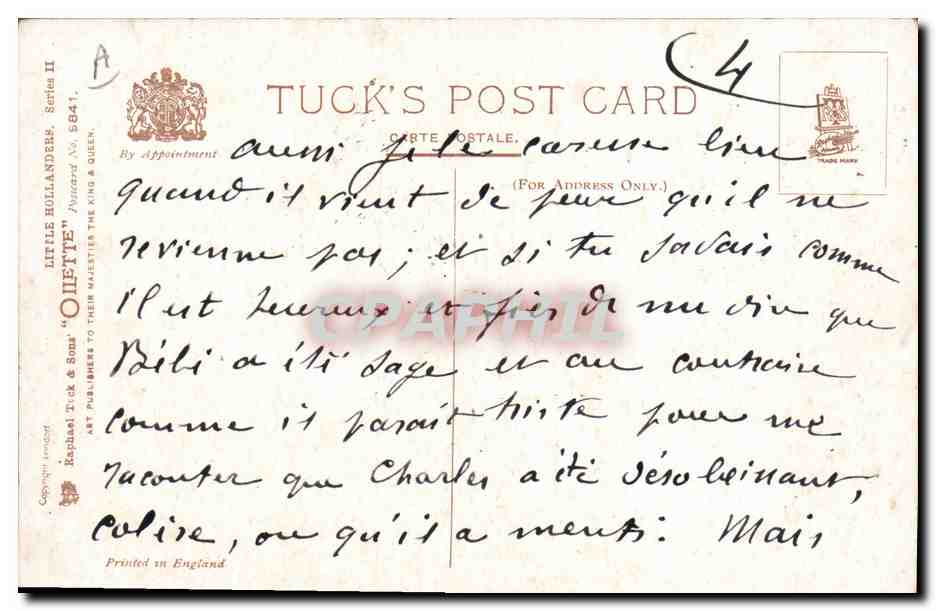 A
4
TUCK'S POST CARD
CARTE POSTALE.
By Appointment
(FOR ADDRESS ONLY.)
TRADE MARK
LITTLE HOLLANDERS. Series II
Raphael Tuck & Sons' "OILETTE" Postcard No. 6841.
ART PUBLISHERS TO THEIR MAJESTIES THE KING & QUEEN.
Copyright
aussi je le caresse bien
quand il vient de peur qu'il ne
revienne pas; et si tu savais comme
il est heureux et fier de me dire que
Bébé a été sage et au contraire
comme il paraît triste pour me
raconter que Charles a été désobéissant,
colère, ou qu'il a menti. Mais
Printed in England
CPAPHIL